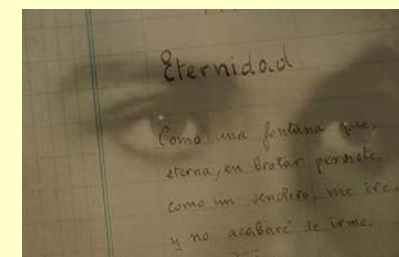 Eternidad
Como una fontana que,
eterna, en brotar persiste
como un sendero, me iré
y no acabaré de irme.